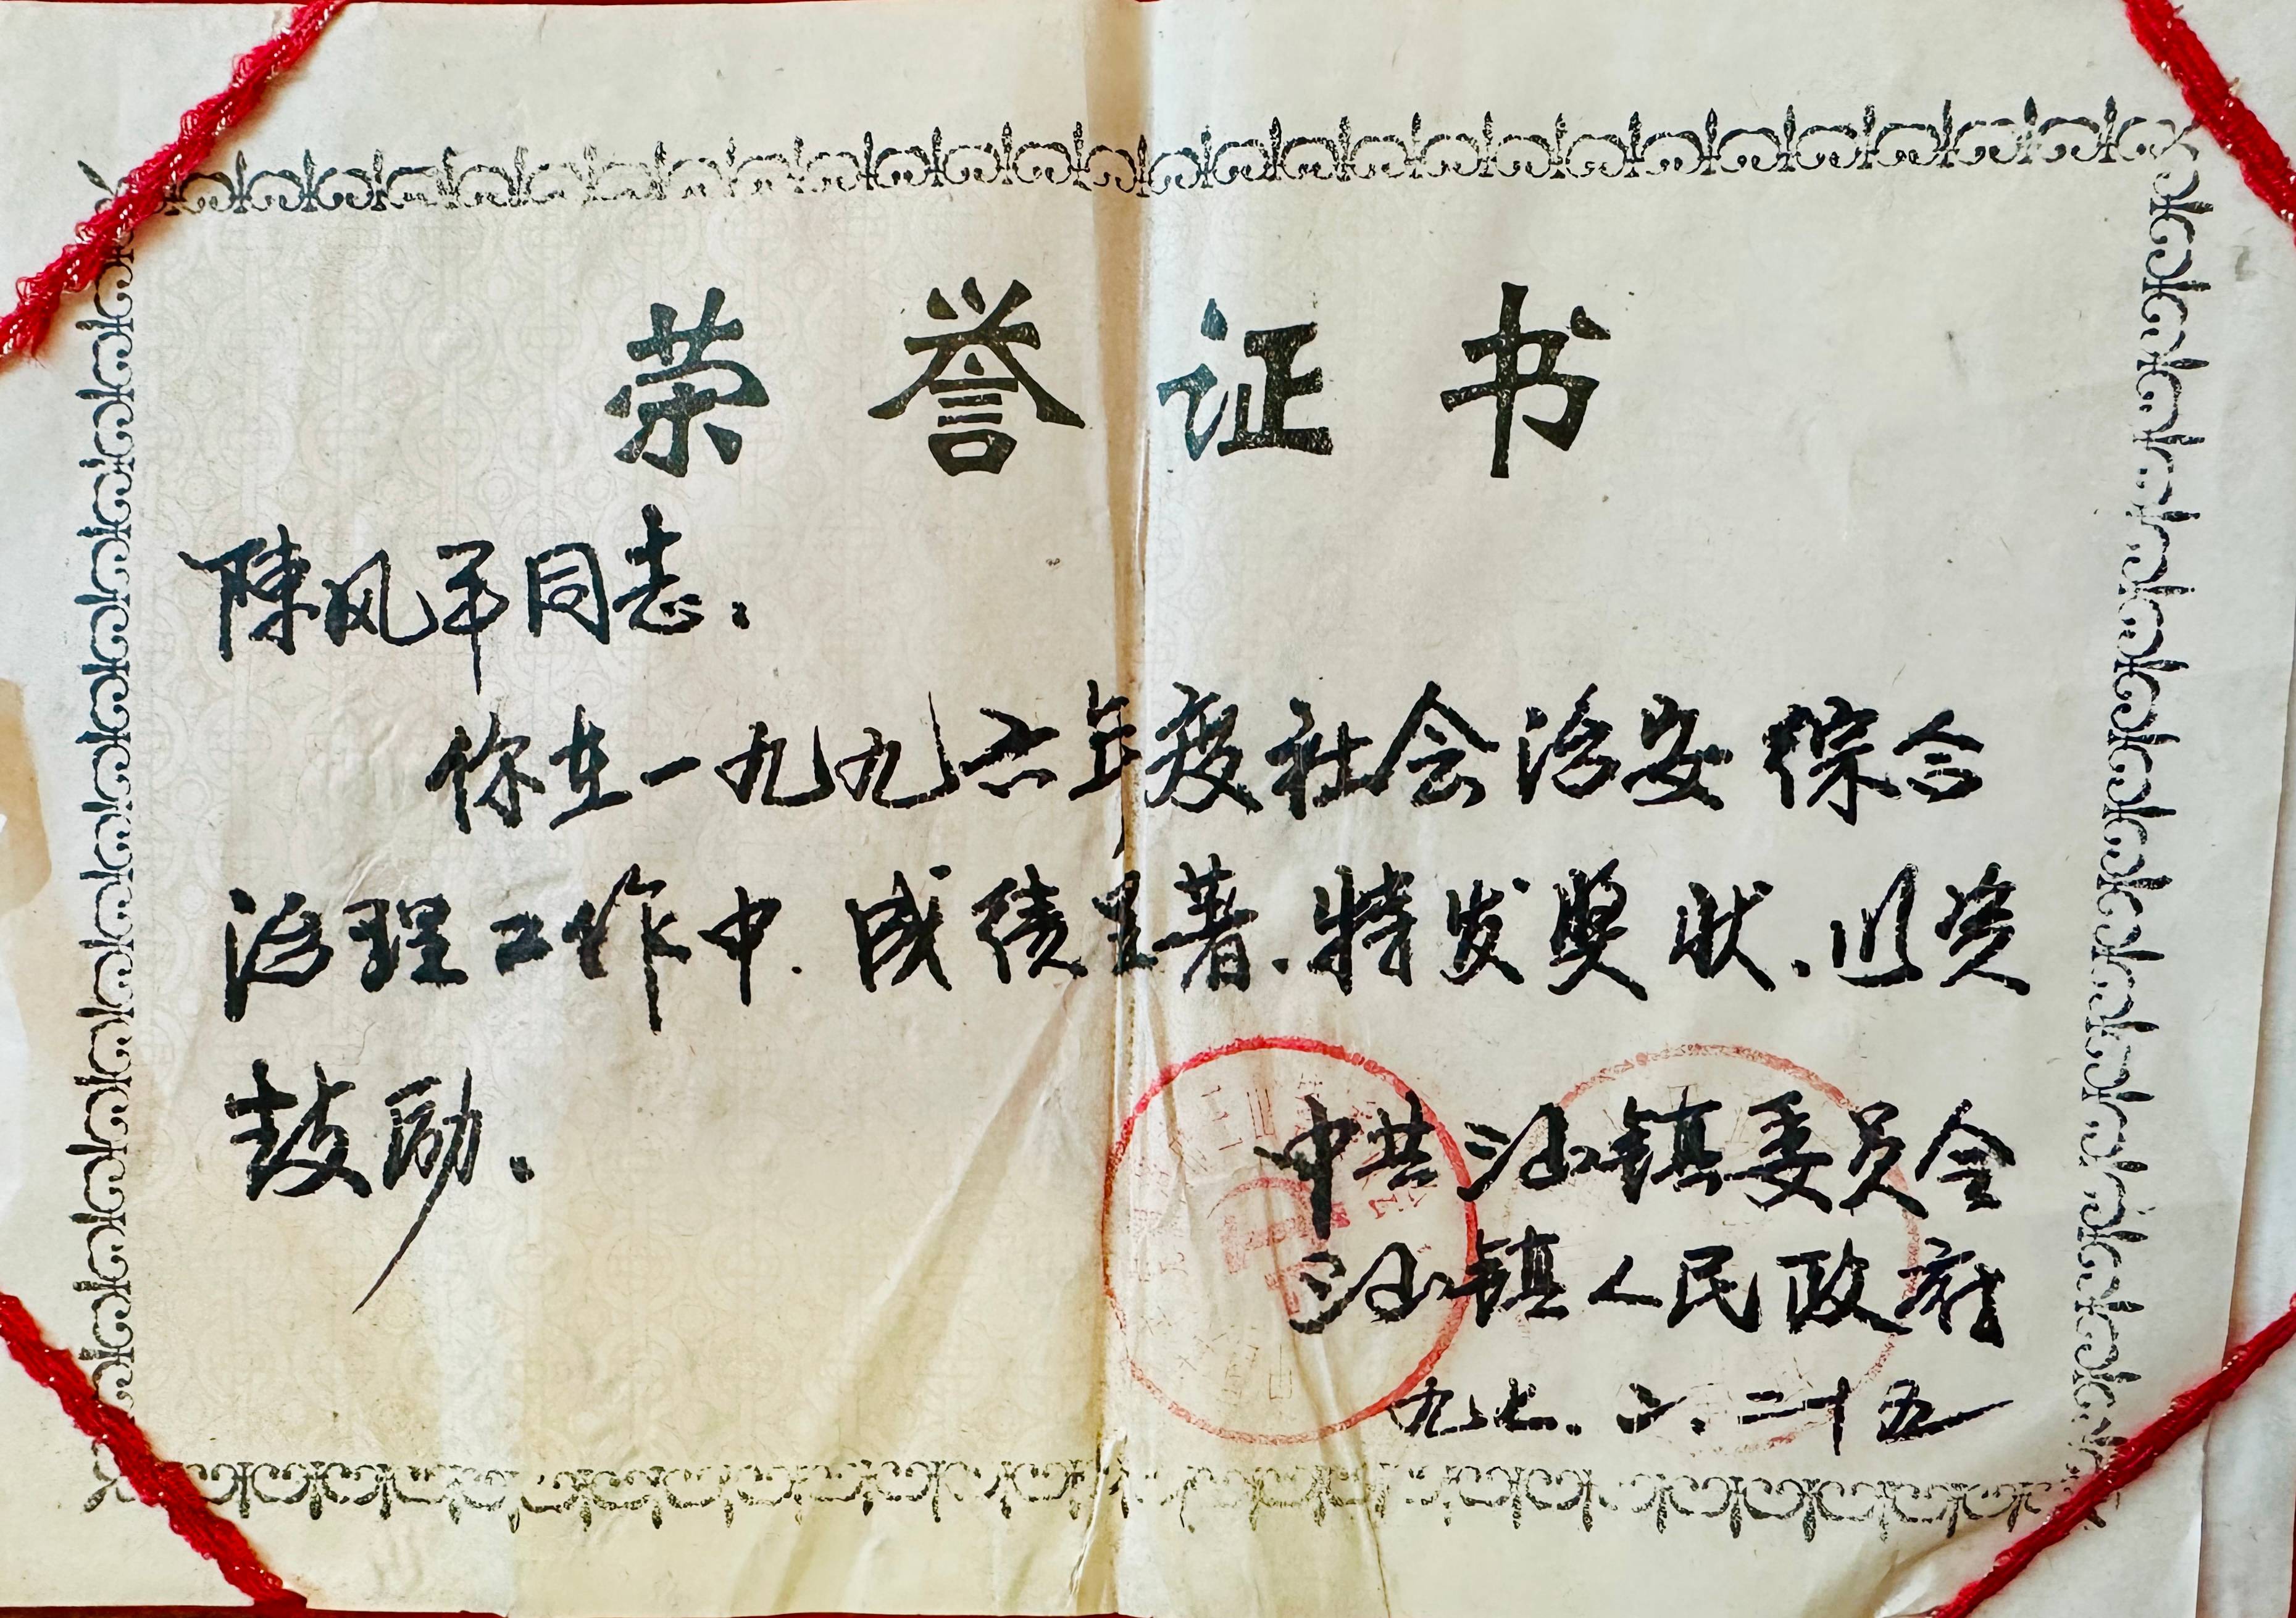 荣誉证书
陳风军同志：
你在一九九六年度社会治安综合
治理工作中.成绩显著.特发奖状.以资
鼓励.
中共汕镇委员会
汕镇人民政府
九七.六.二十五